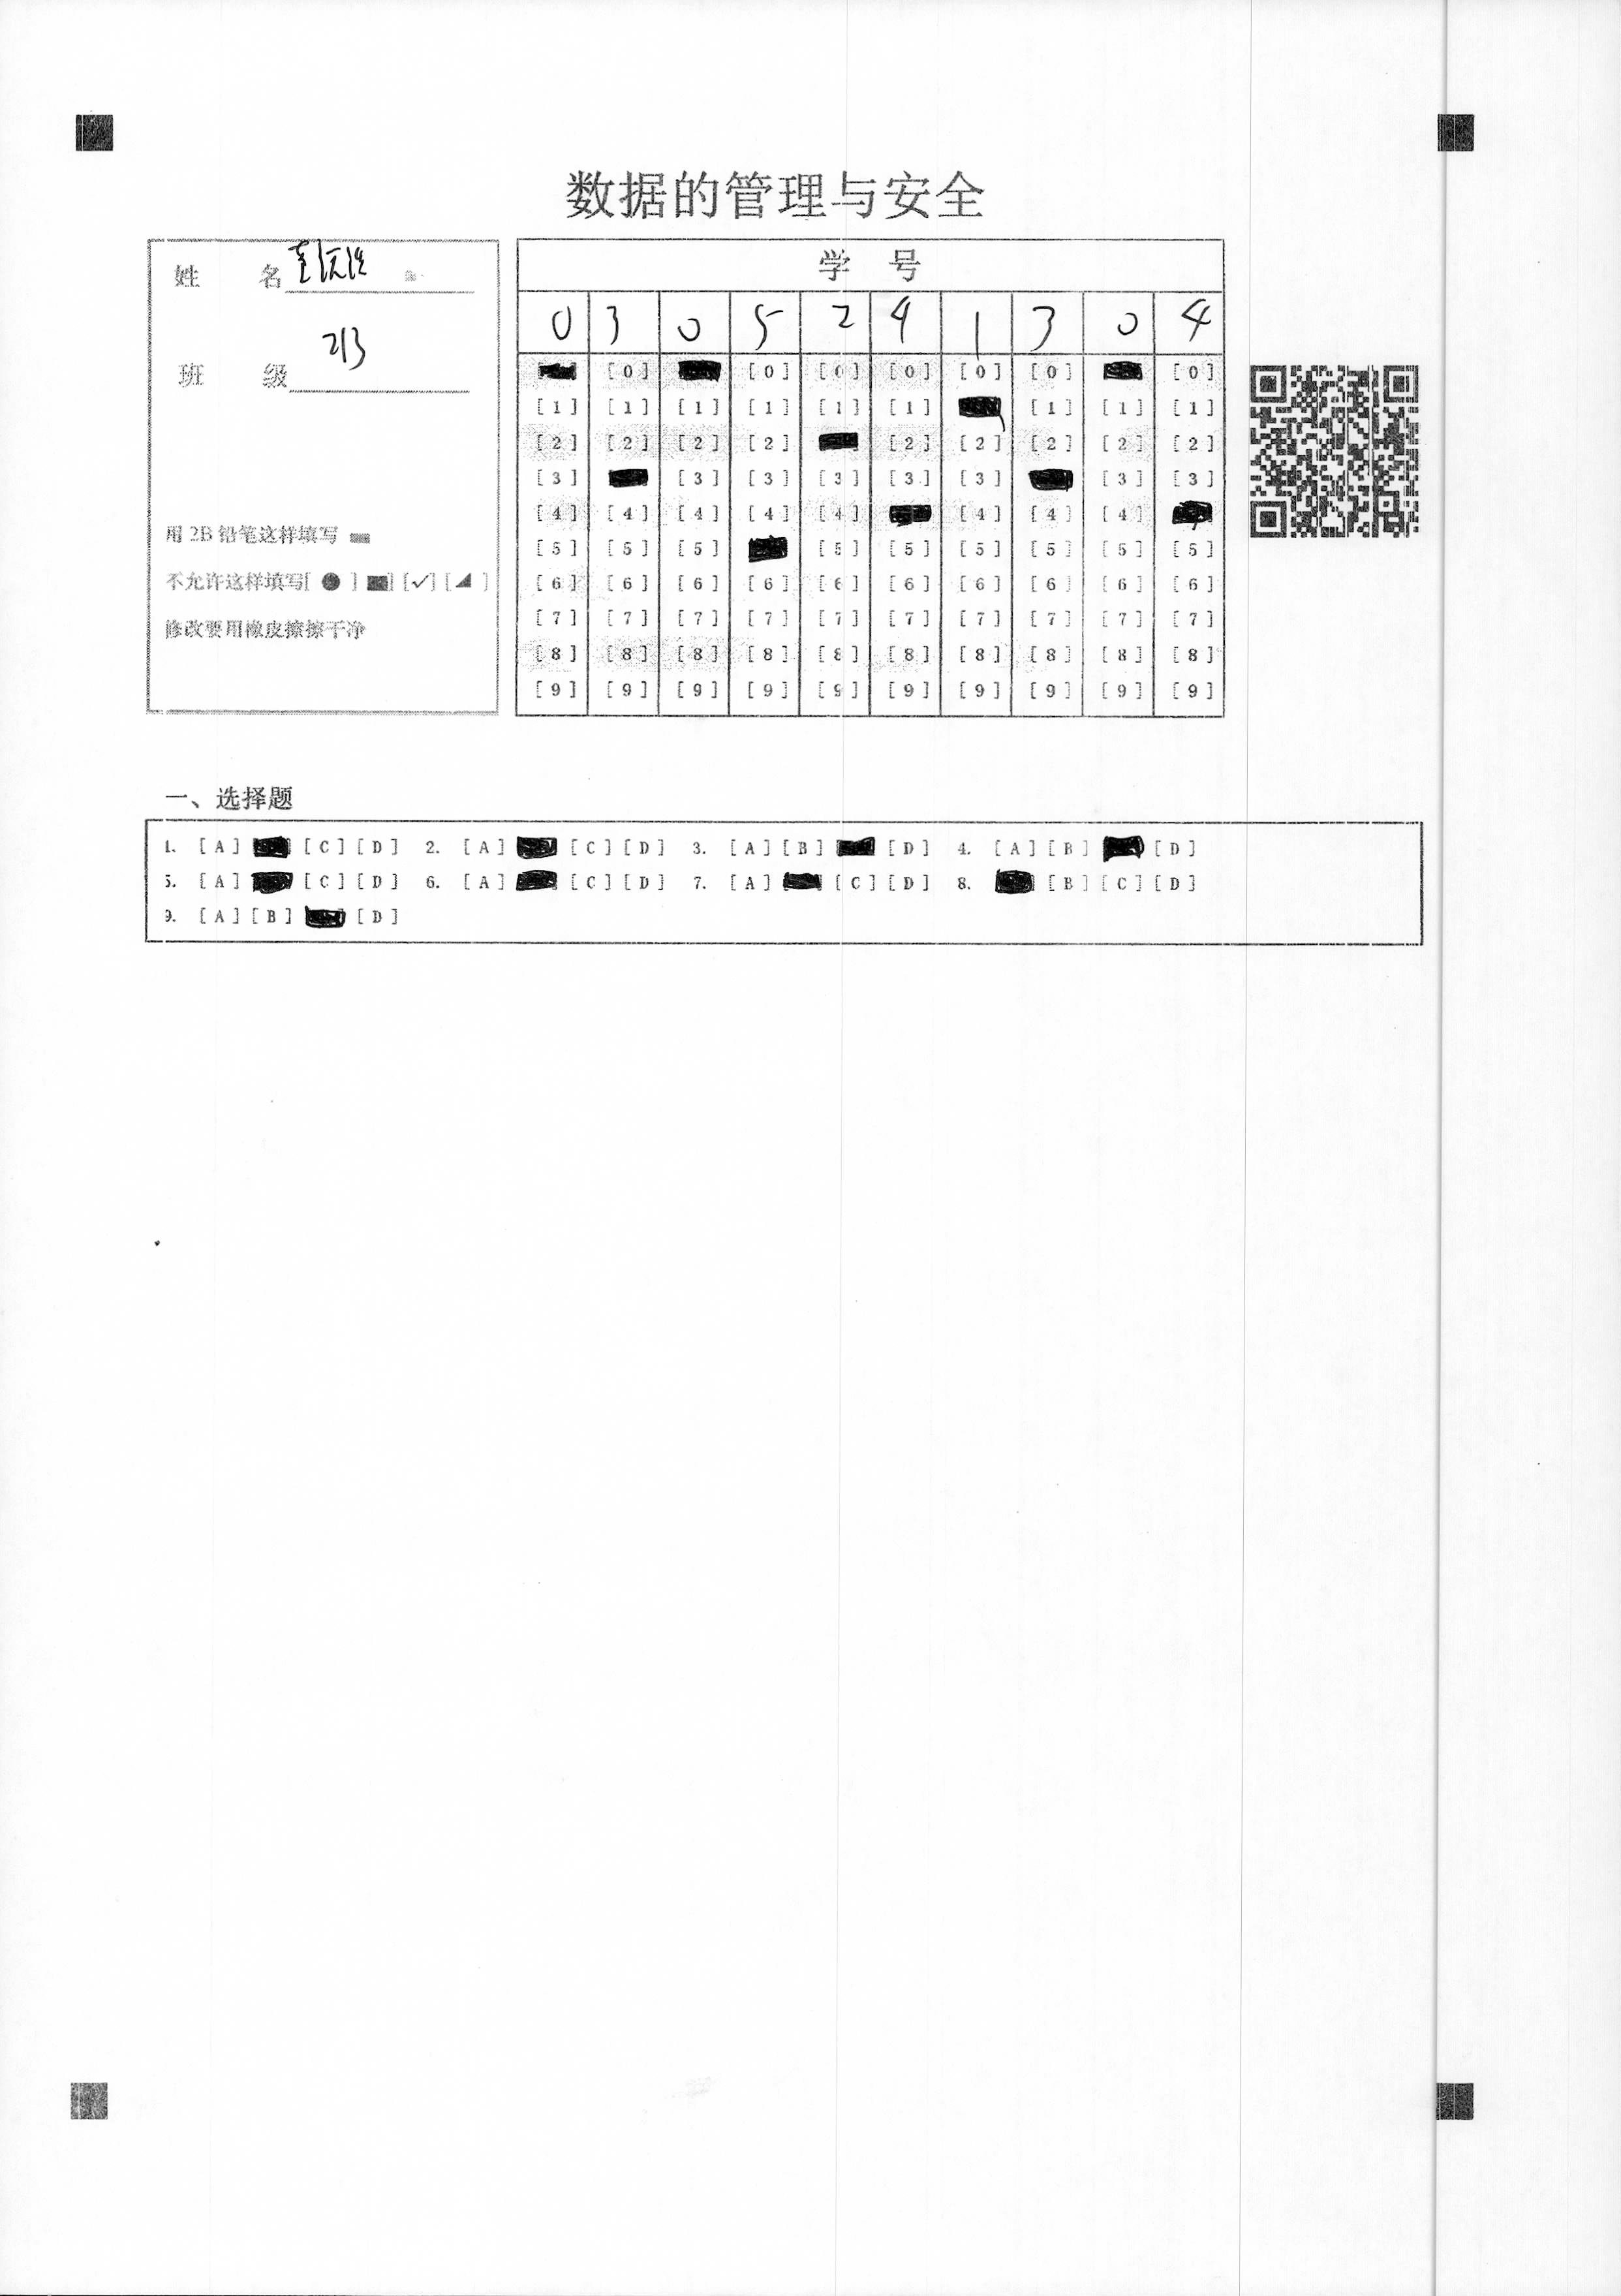 数据的管理与安全
姓 名
班 级 213
用 2B 铅笔这样填写
不允许这样填写[ ● ] ■] [✓] [◢ ]
修改要用橡皮擦擦干净
学 号
0 3 0 5 2 4 1 3 0 4
[0] [0] [0] [0] [0] [0] [0]
[1] [1] [1] [1] [1] [1] [1] [1] [1]
[2] [2] [2] [2] [2] [2] [2] [2] [2]
[3] [3] [3] [3] [3] [3] [3] [3]
[4] [4] [4] [4] [4] [4] [4] [4]
[5] [5] [5] [5] [5] [5] [5] [5] [5]
[6] [6] [6] [6] [6] [6] [6] [6] [6] [6]
[7] [7] [7] [7] [7] [7] [7] [7] [7] [7]
[8] [8] [8] [8] [8] [8] [8] [8] [8] [8]
[9] [9] [9] [9] [9] [9] [9] [9] [9] [9]
一、选择题
1. [A] [C] [D] 2. [A] [C] [D] 3. [A] [B] [D] 4. [A] [B] [D]
5. [A] [C] [D] 6. [A] [C] [D] 7. [A] [C] [D] 8. [B] [C] [D]
9. [A] [B] [D]